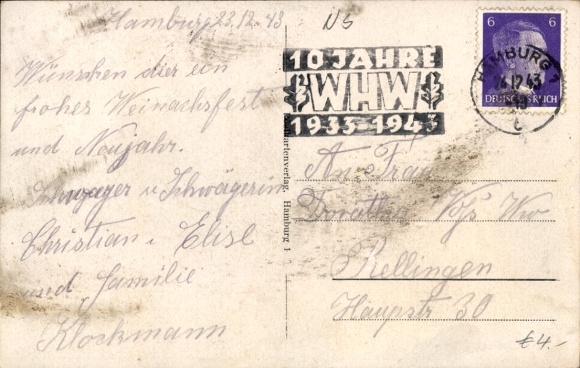 Hamburg 23.12.43
Wünschen dir ein
frohes Weinachsfest
und Neujahr.
Schwager u Schwägerin
Christian u Elise
und Familie
Klockmann
NS
10 JAHRE
WHW
1933-1943
6 6
DEUTSCHES REICH
HAMBURG 1
12.43
kartenverlag, Hamburg 1
An Frau
Dorothea Ww
Rellingen
Haupstr 30
€4.-